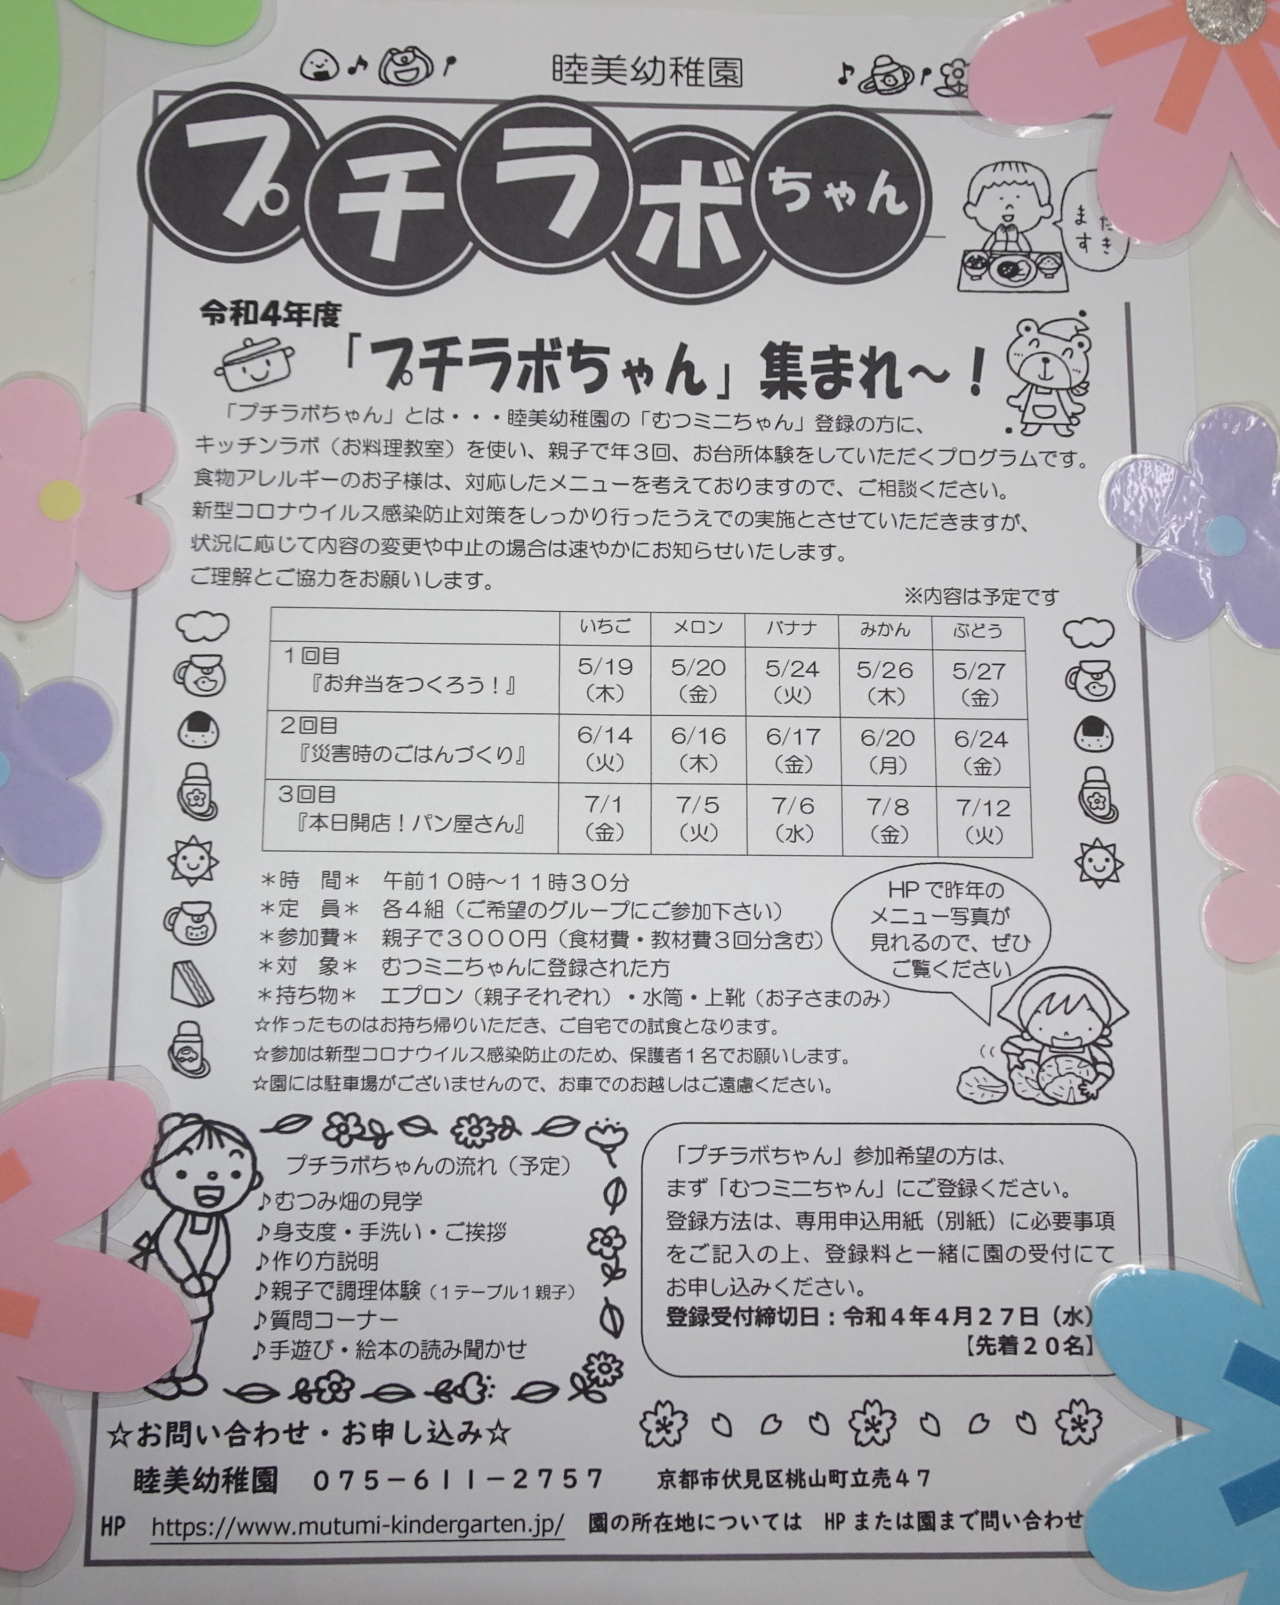 睦美幼稚園
プチラボちゃん
ます
だき
令和4年度
「プチラボちゃん」集まれ～！
「プチラボちゃん」とは・・・睦美幼稚園の「むつミニちゃん」登録の方に、
キッチンラボ（お料理教室）を使い、親子で年３回、お台所体験をしていただくプログラムです。
食物アレルギーのお子様は、対応したメニューを考えておりますので、ご相談ください。
新型コロナウイルス感染防止対策をしっかり行ったうえでの実施とさせていただきますが、
状況に応じて内容の変更や中止の場合は速やかにお知らせいたします。
ご理解とご協力をお願いします。
※内容は予定です
いちご メロン バナナ みかん ぶどう
１回目
『お弁当をつくろう！』
5/19（木） 5/20（金） 5/24（火） 5/26（木） 5/27（金）
２回目
『災害時のごはんづくり』
6/14（火） 6/16（木） 6/17（金） 6/20（月） 6/24（金）
３回目
『本日開店！パン屋さん』
7/1（金） 7/5（火） 7/6（水） 7/8（金） 7/12（火）
＊時　間＊　午前１０時～１１時３０分
＊定　員＊　各４組（ご希望のグループにご参加下さい）
＊参加費＊　親子で３０００円（食材費・教材費３回分含む）
＊対　象＊　むつミニちゃんに登録された方
＊持ち物＊　エプロン（親子それぞれ）・水筒・上靴（お子さまのみ）
☆作ったものはお持ち帰りいただき、ご自宅での試食となります。
☆参加は新型コロナウイルス感染防止のため、保護者１名でお願いします。
☆園には駐車場がございませんので、お車でのお越しはご遠慮ください。
HPで昨年の
メニュー写真が
見れるので、ぜひ
ご覧ください
プチラボちゃんの流れ（予定）
♪むつみ畑の見学
♪身支度・手洗い・ご挨拶
♪作り方説明
♪親子で調理体験（１テーブル１親子）
♪質問コーナー
♪手遊び・絵本の読み聞かせ
「プチラボちゃん」参加希望の方は、
まず「むつミニちゃん」にご登録ください。
登録方法は、専用申込用紙（別紙）に必要事項
をご記入の上、登録料と一緒に園の受付にて
お申し込みください。
登録受付締切日：令和４年４月２７日（水）
【先着２０名】
☆お問い合わせ・お申し込み☆
睦美幼稚園　０７５－６１１－２７５７　京都市伏見区桃山町立売４７
HP　https://www.mutumi-kindergarten.jp/　園の所在地については　HPまたは園まで問い合わせ